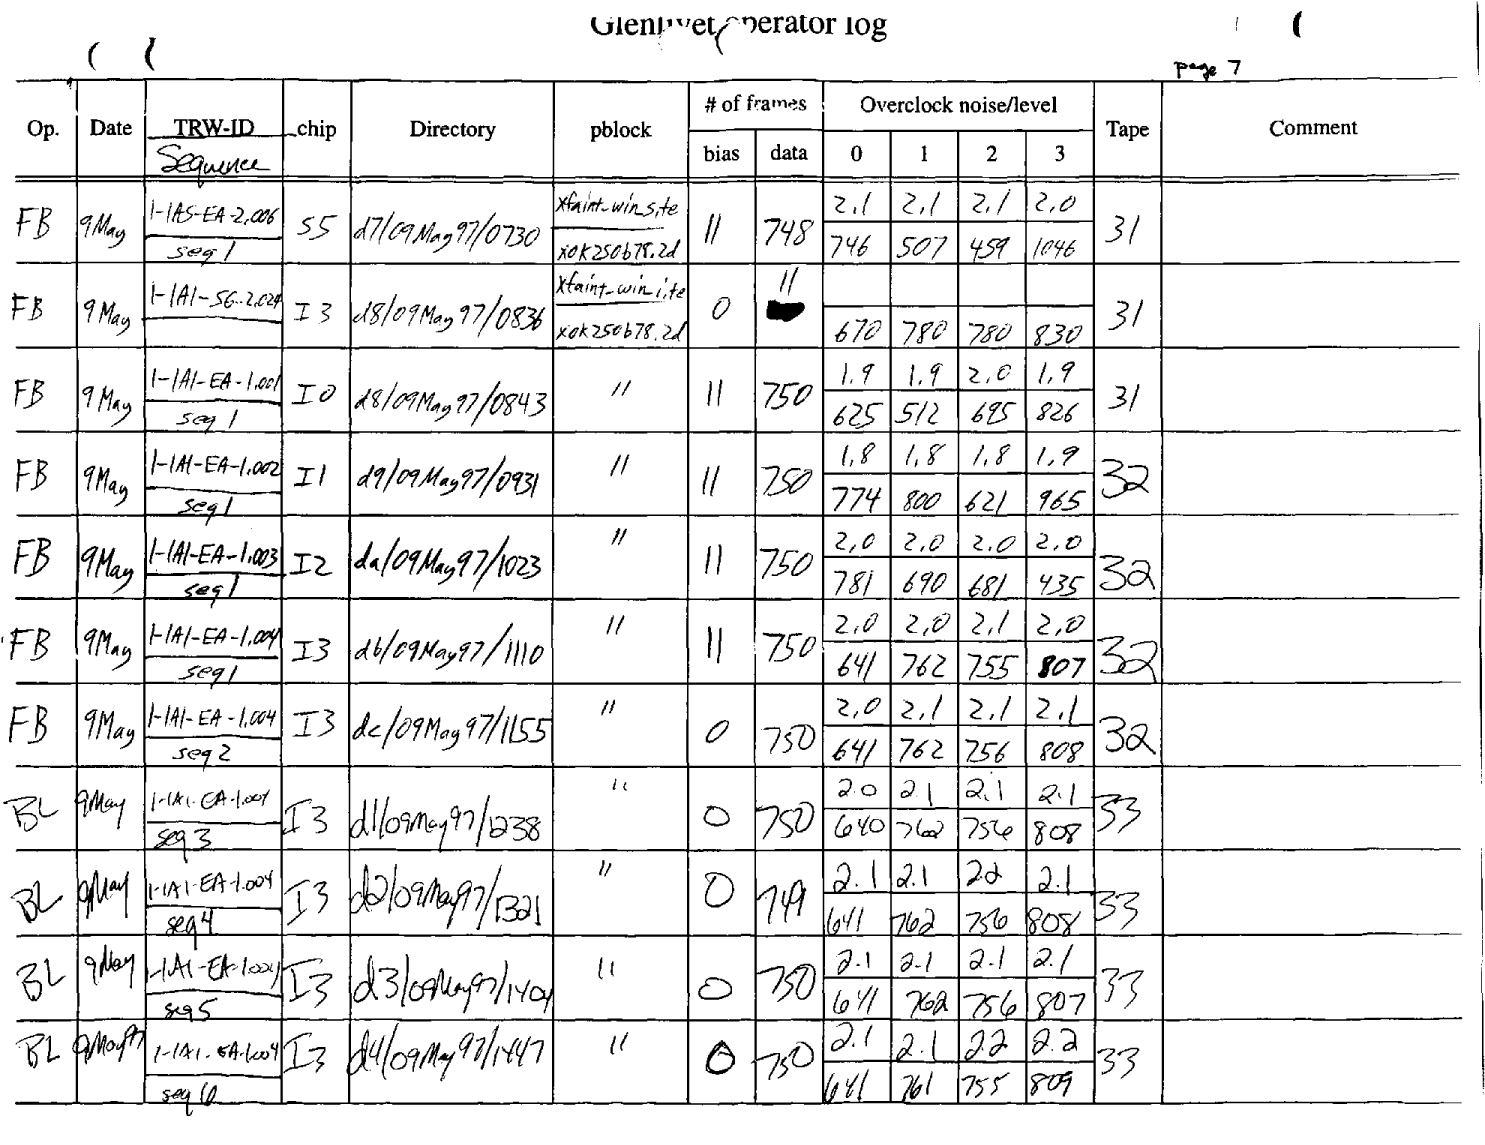 Glenlivet operator log
page 7
Op. Date TRW-ID chip Directory pblock # of frames Overclock noise/level Tape Comment
Sequence bias data 0 1 2 3
FB 9May 1-IAS-EA-2.006 S5 d7/09May97/0730 xfaint_win_site 11 748 2.1 2.1 2.1 2.0 31
seg 1 x0k250b78.2d 746 507 459 1046
FB 9May 1-IA1-SG-2.024 I3 d8/09May97/0836 xfaint_win_i.te 0 11 31
x0k250b78.2d 670 780 780 830
FB 9May 1-IA1-EA-1.001 I0 d8/09May97/0843 " 11 750 1.9 1.9 2.0 1.9 31
seg 1 625 512 695 826
FB 9May 1-IA1-EA-1.002 I1 d9/09May97/0931 " 11 750 1.8 1.8 1.8 1.9 32
seg 1 774 800 621 965
FB 9May 1-IA1-EA-1.003 I2 da/09May97/1023 " 11 750 2.0 2.0 2.0 2.0 32
seg 1 781 690 681 435
FB 9May 1-IA1-EA-1.004 I3 db/09May97/1110 " 11 750 2.0 2.0 2.1 2.0 32
seg 1 641 762 755 807
FB 9May 1-IA1-EA-1.004 I3 dc/09May97/1155 " 0 750 2.0 2.1 2.1 2.1 32
seg 2 641 762 756 808
BL 9May 1-IA1-EA-1.004 I3 d1/09May97/1238 " 0 750 2.0 2.1 2.1 2.1 33
seq 3 640 762 756 808
BL 9May 1-IA1-EA-1.004 I3 d2/09May97/1321 " 0 749 2.1 2.1 2.2 2.1 33
seq 4 641 762 756 808
BL 9May 1-IA1-EA-1.004 I3 d3/09May97/1404 " 0 750 2.1 2.1 2.1 2.1 33
seq 5 641 762 756 807
BL 9May97 1-IA1-EA-1.004 I3 d4/09May97/1447 " 0 750 2.1 2.1 2.2 2.2 33
seq 6 641 761 755 809